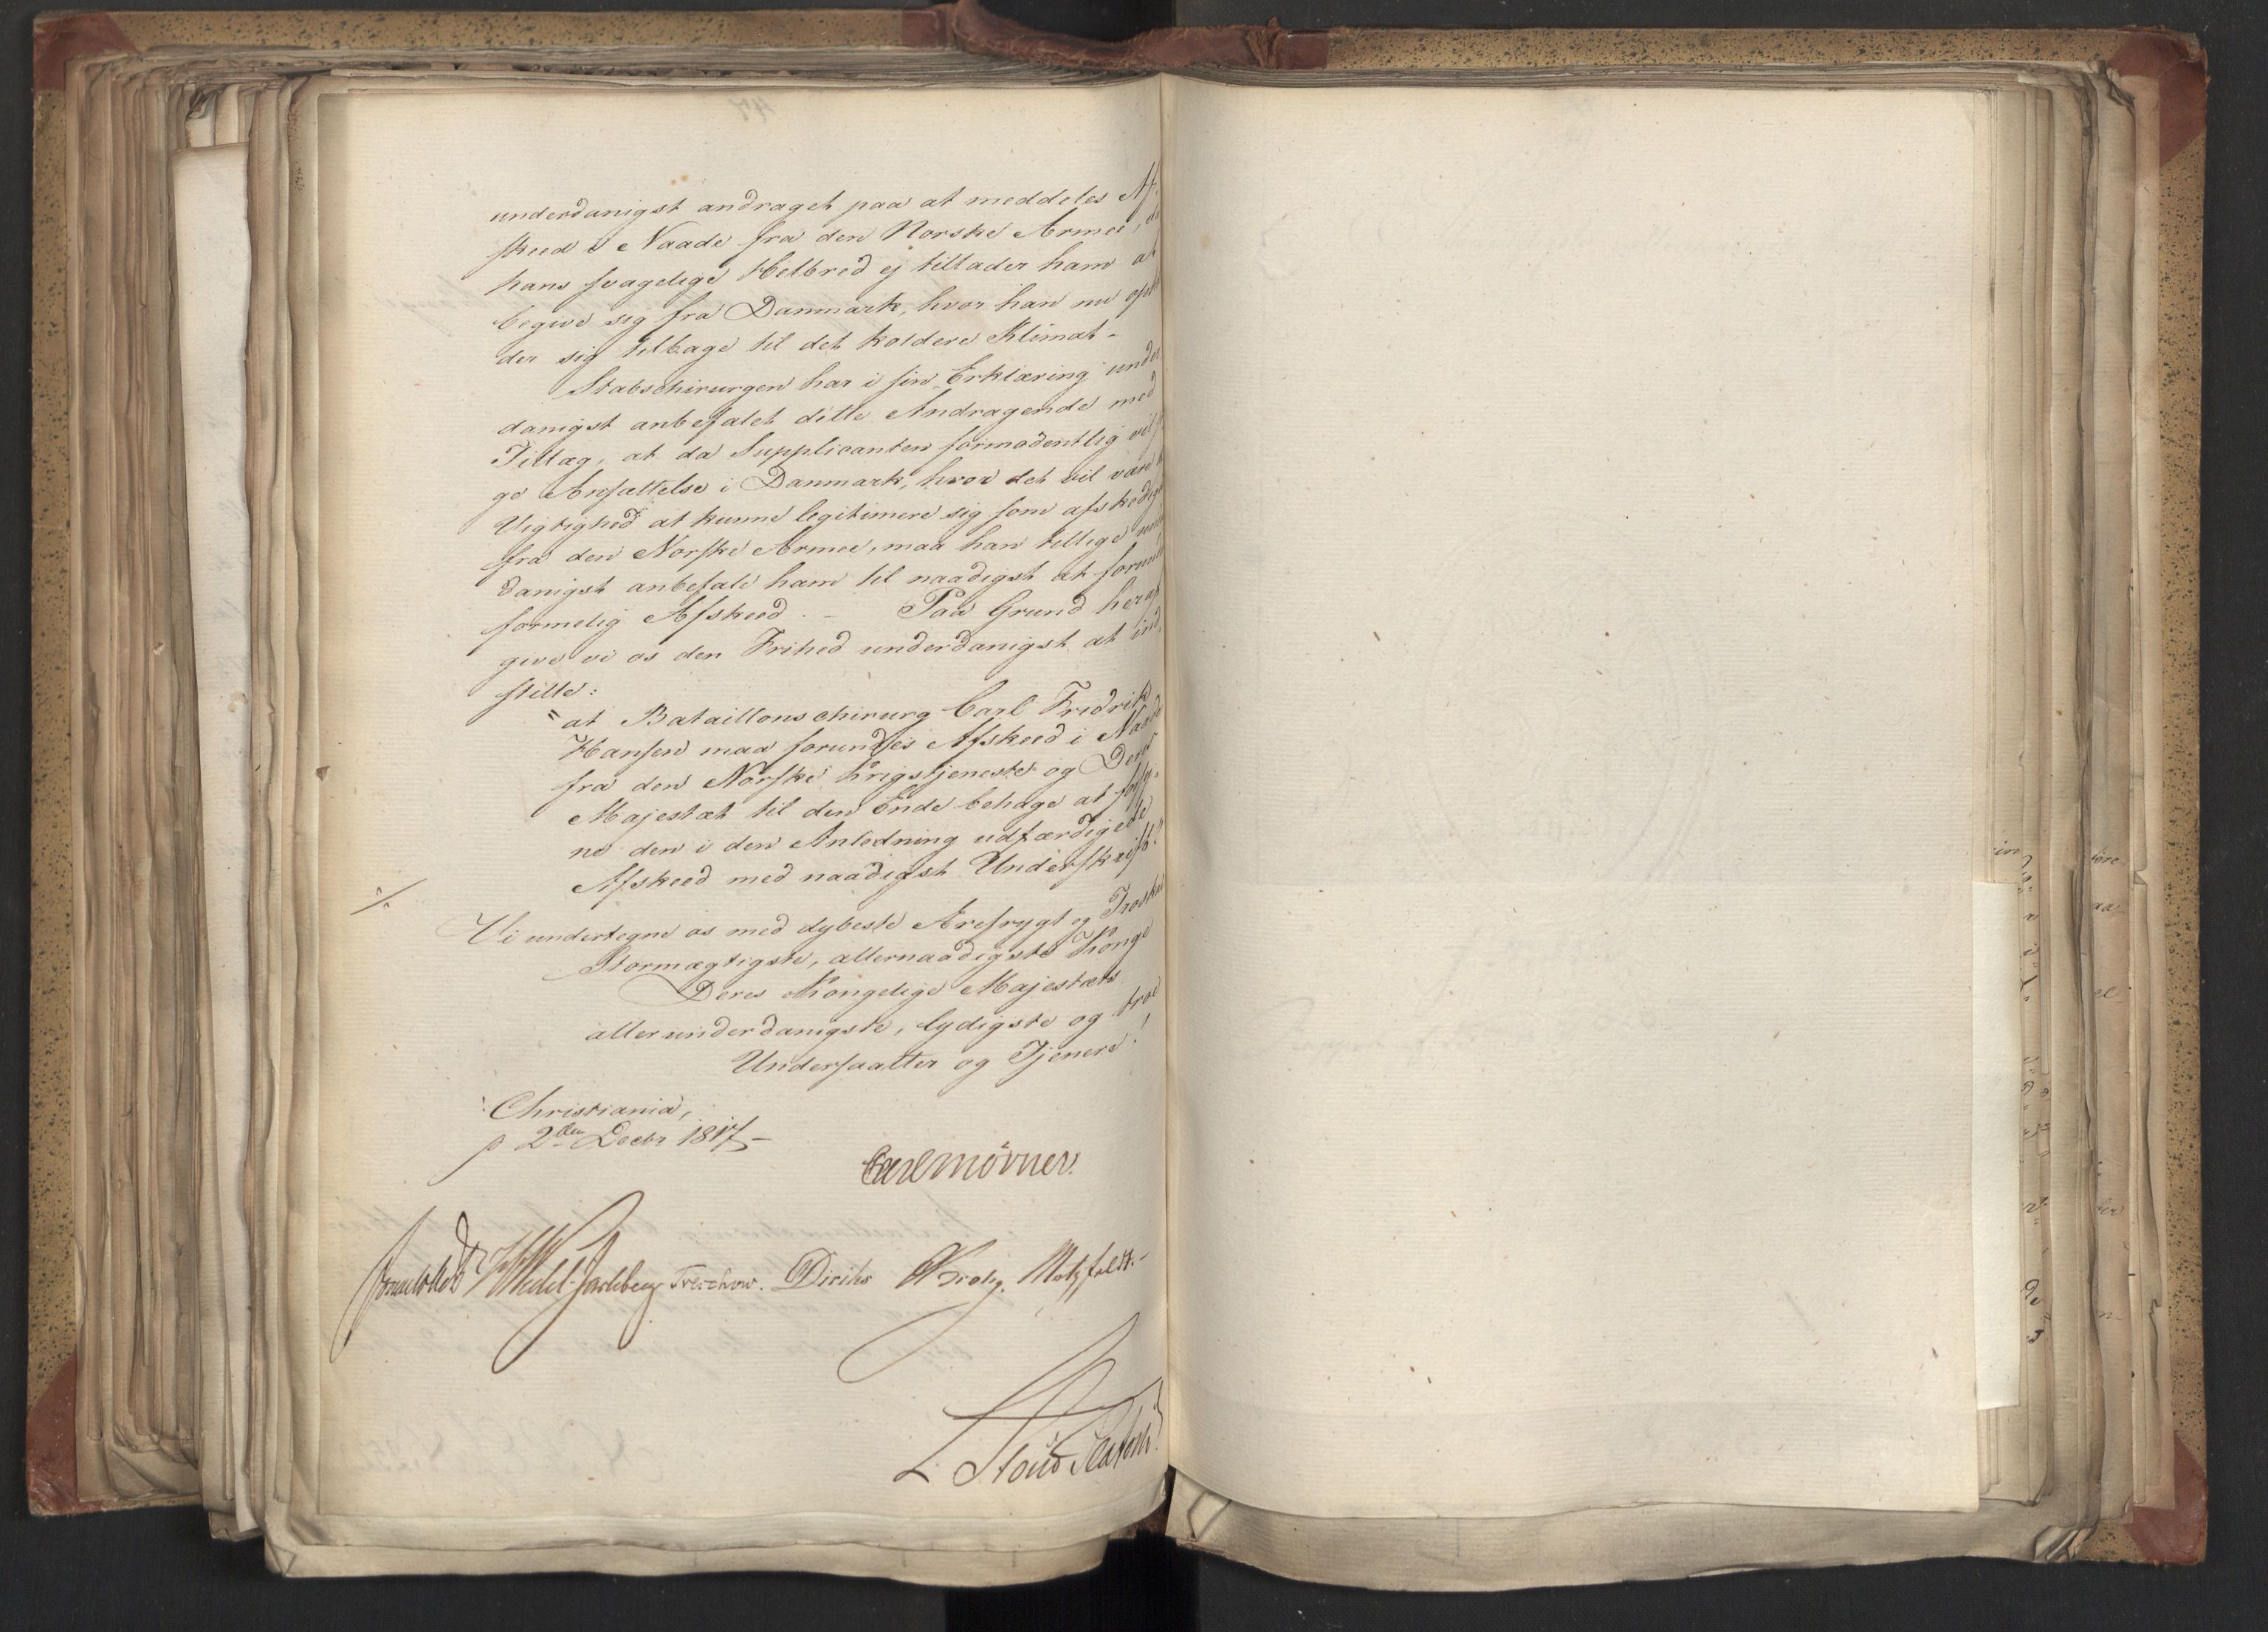 underdanigst andraget paa at meddeles Af-
skeed i Naade fra den Norske Armee, da
hans svagelige Helbred ej tillader ham at
begive sig fra Danmark, hvor han nu ophol
der sig tilbage til det koldere Klimat-
Stabschirurgen har i sin Erklæring under
danigst anbefalet dette Andragende med
Tillæg, at da Supplicanten formodentlig vil sø
ge Ansættelse i Danmark, hvor det vil være
Vigtighed at kunne legitimere sig som afskediget
fra den Norske Armee, maa han tillige under
danigst anbefale ham til naadigst at forundes
formelig Afskeed. - Paa Grund heraf
give vi os den Frihed underdanigst at ind
stille:
"at Bataillonschirurg Carl Fredrik
Hansen maa forundes Afskeed i Naade
fra den Norske Krigstjeneste og Deres
Majestæt til den Ende behage at forsy-
ne den i den Anledning udfærdigede
Afskeed med naadigst Underskrift."
Vi undertegne os med dybeste Ærefrygt og Troskab
Stormægtigste, allernaadigste Konge
Deres Kongelige Majestæts
allerunderdanigste, lydigste og troe
Undersaatter og Tjenere!
Christiania,
p 2den Decbr 1817-
Carl Mörner.
Sommerhielm Wedel-Jarlsberg Treschow. Diriks Krohg. Motzfeldt.-